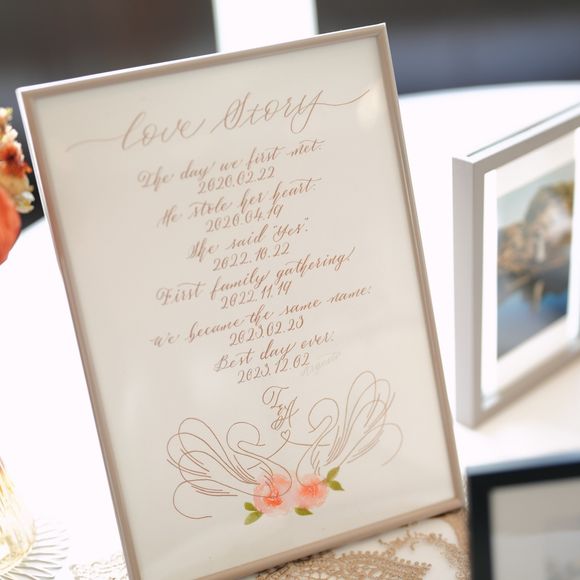 Love Story
The day we first met.
2020.02.22
He stole her heart.
2020.04.19
She said "Yes".
2022.10.22
First family gathering!
2022.11.19
We became the same name.
2023.02.23
Best day ever.
2023.12.02